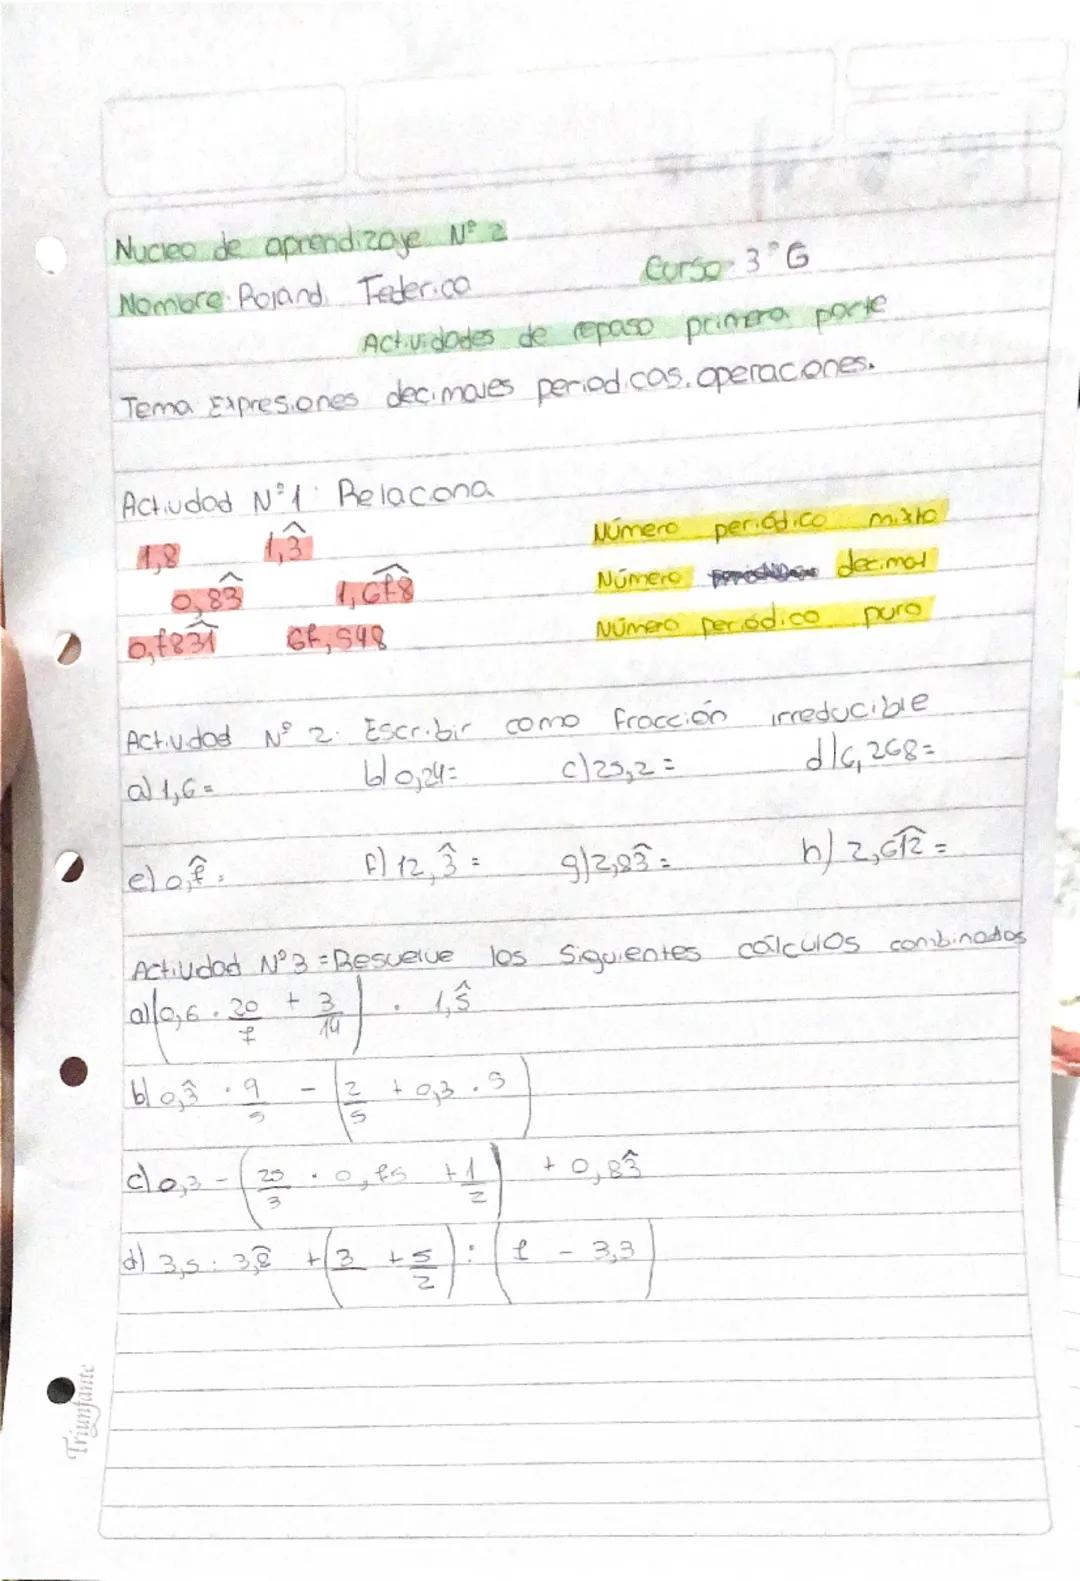 Nucleo de aprendizaje Nº 2
Nombre: Rojand Federico Curso 3°G
Actividades de repaso primera parte
Tema Expresiones decimales periodicas. operaciones.
Actividad Nº1: Relaciona
1,8 1,3̂ Número periódico mixto
0,83̂ 1,67̂8̂ Número decimal
0,7831̂ 67,548 Número periódico puro
Actividad Nº 2. Escribir como fracción irreducible
a) 1,6= b) 0,24= c) 25,2= d) 6,268=
e) 0,7̂= f) 12,3̂= g) 2,83̂= h) 2,61̂2̂=
Actividad Nº3=Resuelve los siguientes cálculos combinados
a) (0,6 . 20/7 + 3/14) . 1,5̂
b) 0,3̂ . 9/5 - (2/5 + 0,3 . 5)
c) 0,3 - (25/3 . 0,75 + 1/2) + 0,83̂
d) 3,5 : 3,8̂ + (3 + 5/2) : (7 - 3,3)
Triunfante